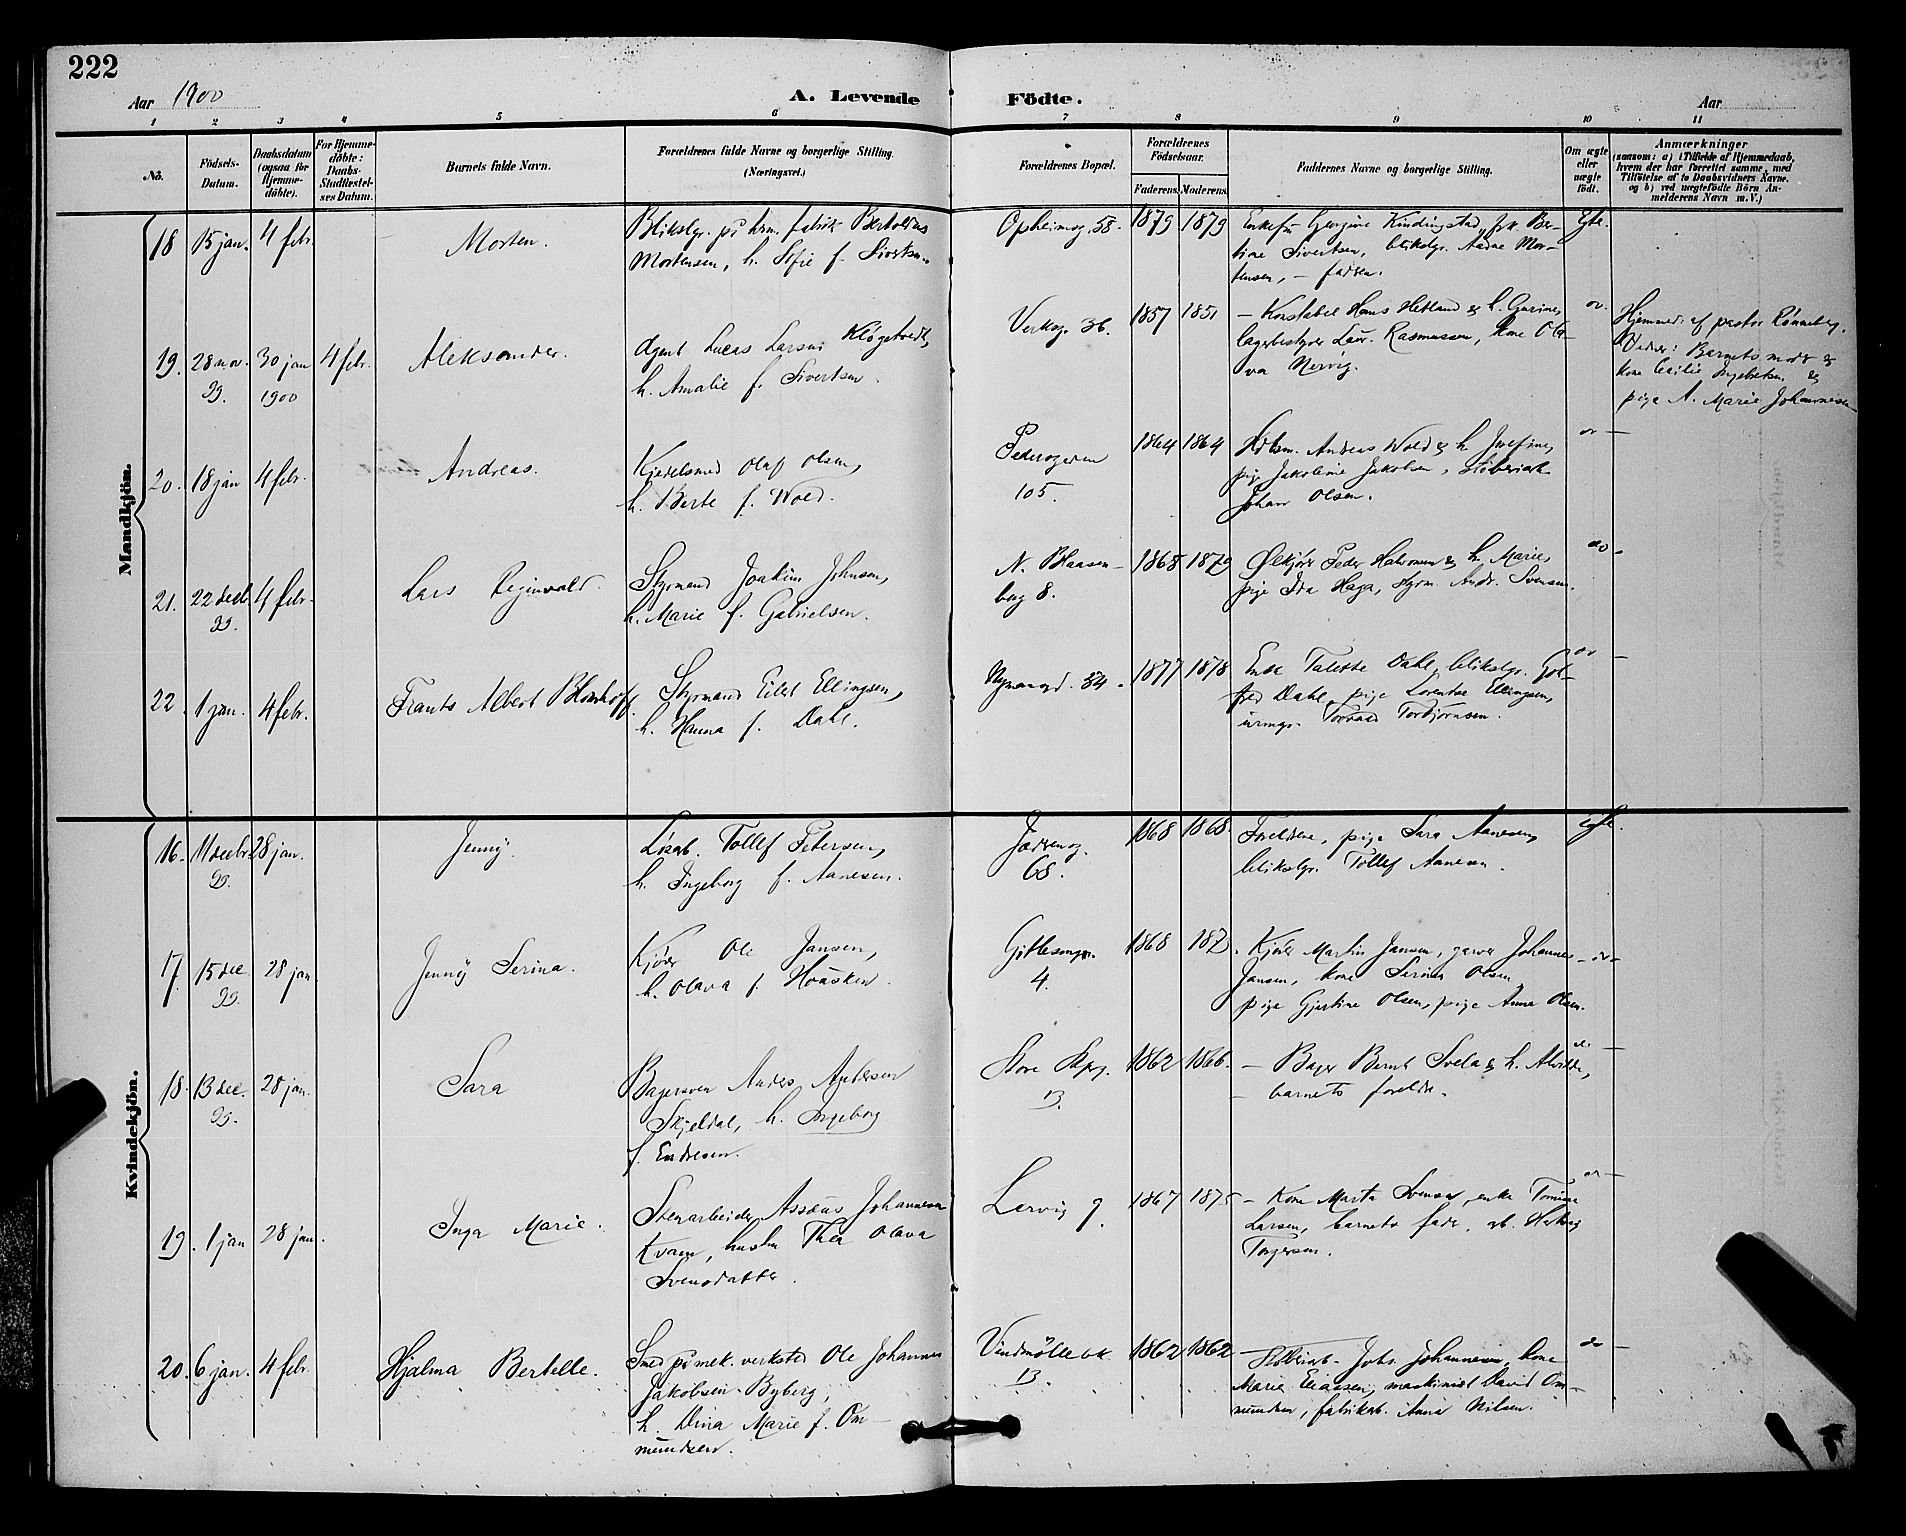 222
Aar 1900
A. Levende Födte.
Aar
1 2 3 4 5 6 7 8 9 10 11
No.
Födsels-Datum.
Daabsdatum (ogsaa for Hjemme-döbte).
For Hjemme-döbte: Daabs-Stadfæstel-ses Datum.
Barnets fulde Navn.
Forældrenes fulde Navne og borgerlige Stilling.
(Næringsvei.)
Forældrenes Bopæl.
Forældrenes Födselsaar.
Faderens. Moderens.
Faddernes Navne og borgerlige Stilling.
Om ægte eller uægte födt.
Anmærkninger
(saasom: a) i Tilfælde af Hjemmedaab,
hvem der har forrettet samme, med
Tilföielse af to Daabsvidners Navne.
og b) ved uægtefödte Börn An-
melderens Navn m. V.)
Mandkjön.
18 15 jan. 4 febr. Morten.
Blikslgr. på hm. fabrik Bertholdus
Mortensen, h. Sofie f. Sivertsen.
Opheimsg. 58. 1879 1879
Enkefru Gurgine Kindingstad, frk Ber-
tine Sivertsen, blikslgr. Aadne Mor-
tensen, – faderen.
Egte.
19. 28 nov. 99. 30 jan 1900 4 febr. Aleksander.
Agent Lucas Larsen Kløgetvedt,
h. Amalie f. Sivertsen.
Verksg. 36. 1857 1851
– Konstabel Hans Hetland & h. Gurine,
lagerbestyrer Laur. Rasmussen, kone Ola-
va Nervig.
do.
Hjemmed. af pastor Rønneberg.
Vidner: Barnets moder &
kone Cecilie Ingebretsen &
pige A. Marie Johannesen
20. 18 jan 4 febr. Andreas.
Kjedelsmed Olaf Olsen,
h. Berte f. Wold.
Pedersgaden
105. 1864 1864
Hdlsm. Andreas Wold & h. Josefine,
pige Jakobine Jakobsen, støberiarb.
Johan Olsen.
do –
21. 22 decb. 99. 4 febr. Lars Reginvald.
Styrmand Joakim Johnsen,
h. Marie f. Gabrielsen.
N. Blaasen-
borg 8. 1868 1879
Ølkjører Peder Halvorsen & h. Marie,
pige Ida Haga, styrm. Andr. Svensen.
do –
22. 1 jan. 4 febr. Frants Albert Blomhoff.
Styrmand Eilet Ellingsen,
h. Hanna f. Dahl.
Nymansgd. 34. 1877 1878
Enke Talette Dahl, blikslgr. Got-
fred Dahl, pige Lorentse Ellingsen,
urmgr. Torvald Torbjørnsen.
do –
Kvindekjön.
16. 11 decbr. 99. 28 jan. Jenny.
Løsarb. Tollef Petersen,
h. Ingeborg f. Aanesen.
Jædersg.
68. 1868 1868.
Foreldrene, pige Sara Aanesen,
blikslgr. Tollef Aanesen.
Egte.
17. 15 dec 99. 28 jan. Jenny Serina.
Kjører Ole Jansen,
h. Olava f. Haasken.
Gitlesmyr.
4. 1868 1873.
Kjører Martin Jansen, garver Johannes
Jansen, kone Serina Olsen
pige Gjertine Olsen, pige Anna Olsen.
– do –
18. 13 dec. 99. 28 jan. Sara
Bagersven Anders Andersen
Skjeldal, h. Ingeborg
f. Endresen.
Store Skpg.
13. 1862 1866.
– Bager Bernt Svela & h. Alvilde,
– barnets foreldre.
do.
19. 1 jan 28 jan. Inga Marie.
Stenarbeider Assæus Johannesen
Kvam, hustru Thea Olava
Svensdatter.
Lervig 9. 1867 1875
– Kone Marta Svensen, enke Tomine
Larsen, barnets fader, arb. Hertvig
Torgersen.
do –
20. 6 jan. 4 febr. Hjalma Bertelle.
Smed på mek. verksted Ole Johannes
Jakobsen Byberg,
h. Dina Marie f. Om-
mundsen.
Vindmøllebk
13. 1862 1862
Støberiarb. Johs. Johannesen, kone
Marie Eliassen, maskinist David Om-
mundsen, fabrikarb. Anna Nilsen.
do –